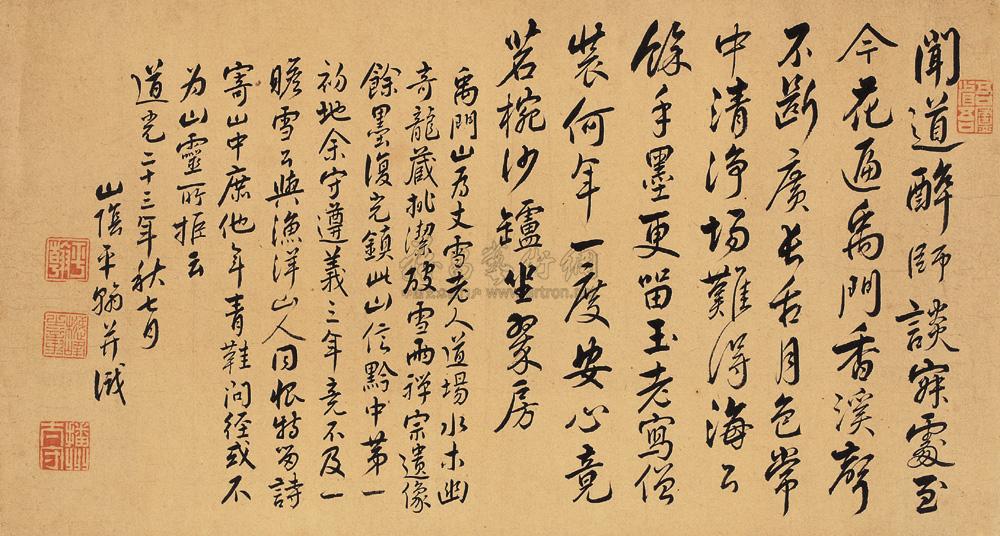 聞道醉師談寂處至
今花遍禹門香溪聲
不斷廣長舌月色常
中清淨場難得海公
餘手墨更留玉老寫僧
裝何年一度安心竟
茗椀沙罏坐翠房
禹門山為丈雪老人道場水木幽
奇龍藏挑潔破雪兩禪宗遺像
餘墨復光鎮此山信黔中第一
初地余守遵義三年竟不及一
瞻雪公與漁洋山人同恨特留詩
寄山中庶他年青鞋問徑或不
为山靈所拒云
道光二十三年秋七月
山陰平翰并識